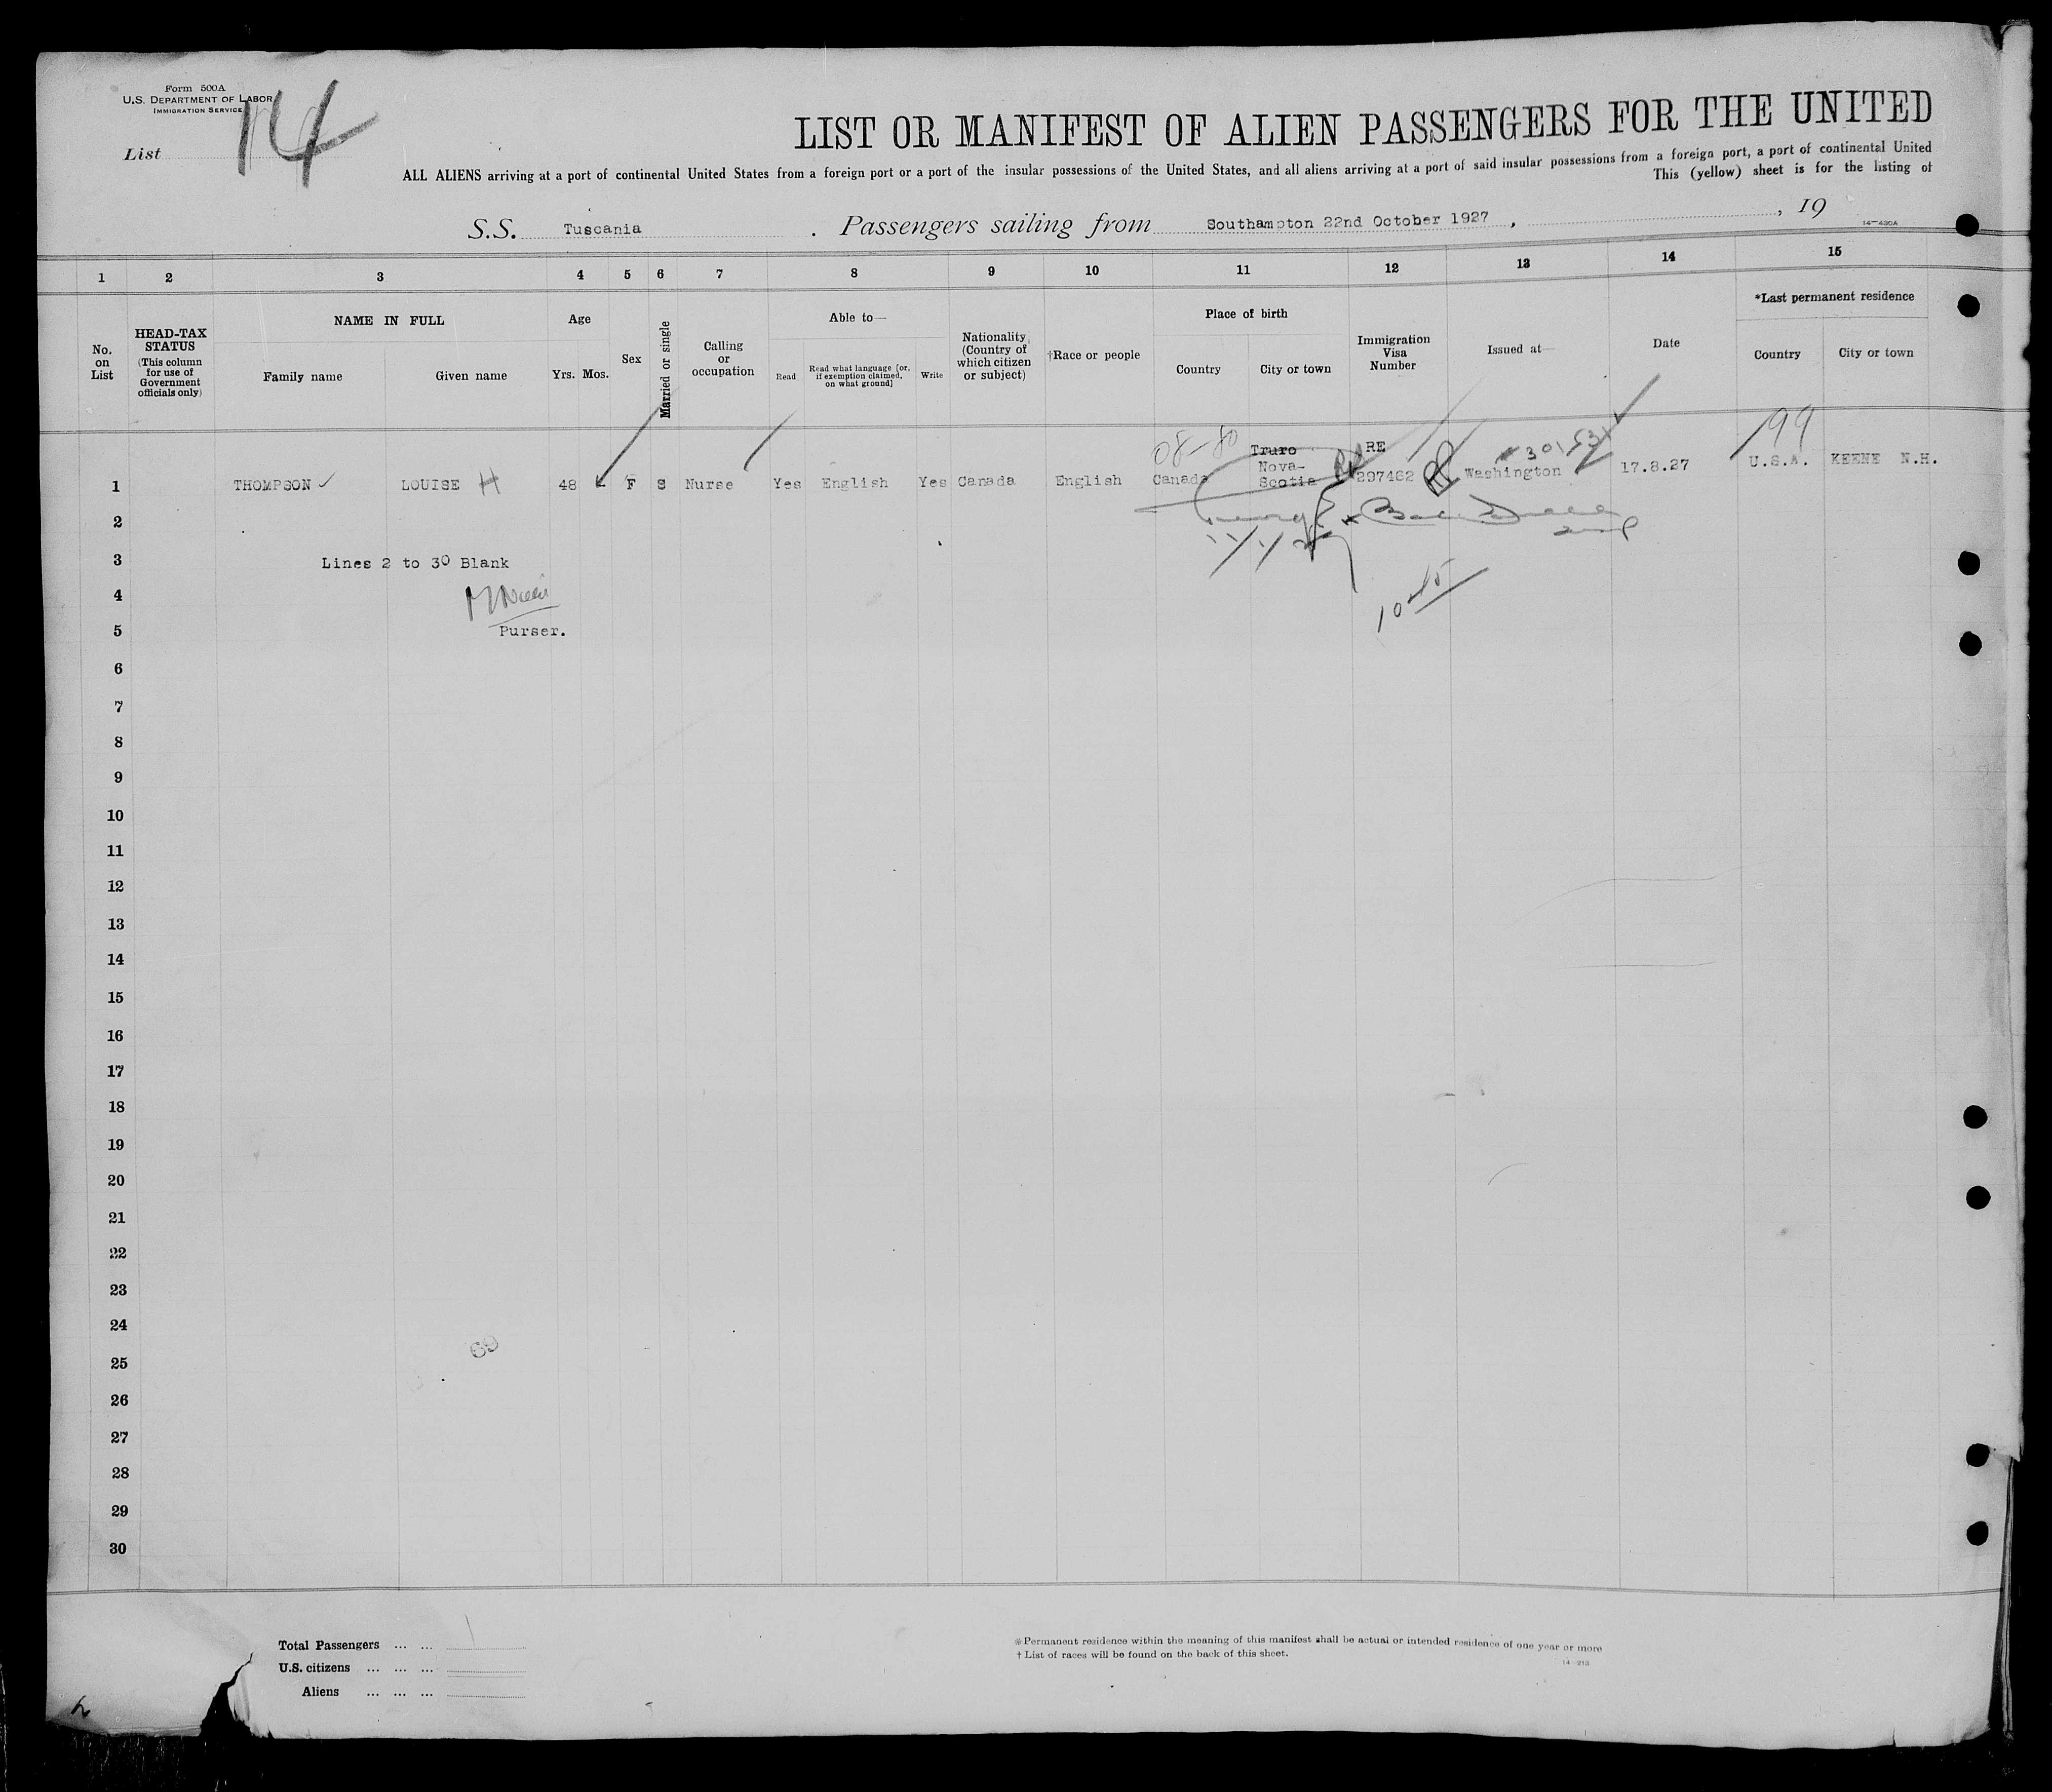 Form 500A
U.S. DEPARTMENT OF LABOR
IMMIGRATION SERVICE
List 14
LIST OR MANIFEST OF ALIEN PASSENGERS FOR THE UNITED
ALL ALIENS arriving at a port of continental United States from a foreign port or a port of the insular possessions of the United States, and all aliens arriving at a port of said insular possessions from a foreign port, a port of continental United
This (yellow) sheet is for the listing of
S.S. Tuscania . Passengers sailing from Southampton 22nd October 1927 , , 19
14—430A
1 2 3 4 5 6 7 8 9 10 11 12 13 14 15
No. on List
HEAD-TAX STATUS (This column for use of Government officials only)
NAME IN FULL
Family name Given name
Age
Yrs. Mos.
Sex
Married or single
Calling or occupation
Able to—
Read Read what language [or, if exemption claimed, on what ground] Write
Nationality (Country of which citizen or subject)
†Race or people
Place of birth
Country City or town
Immigration Visa Number
Issued at—
Date
*Last permanent residence
Country City or town
08-80 Truro RE 199
1 THOMPSON LOUISE H 48 - F S Nurse Yes English Yes Canada English Canada Nova-Scotia 297462 Washington 17.8.27 U.S.A. KEENE N.H.
2
3 Lines 2 to 30 Blank
4
5 Purser.
6
7
8
9
10
11
12
13
14
15
16
17
18
19
20
21
22
23
24
69
25
26
27
28
29
30
Total Passengers ... ...
U.S. citizens ... ... ...
Aliens ... ... ...
* Permanent residence within the meaning of this manifest shall be actual or intended residence of one year or more
† List of races will be found on the back of this sheet.
14—213